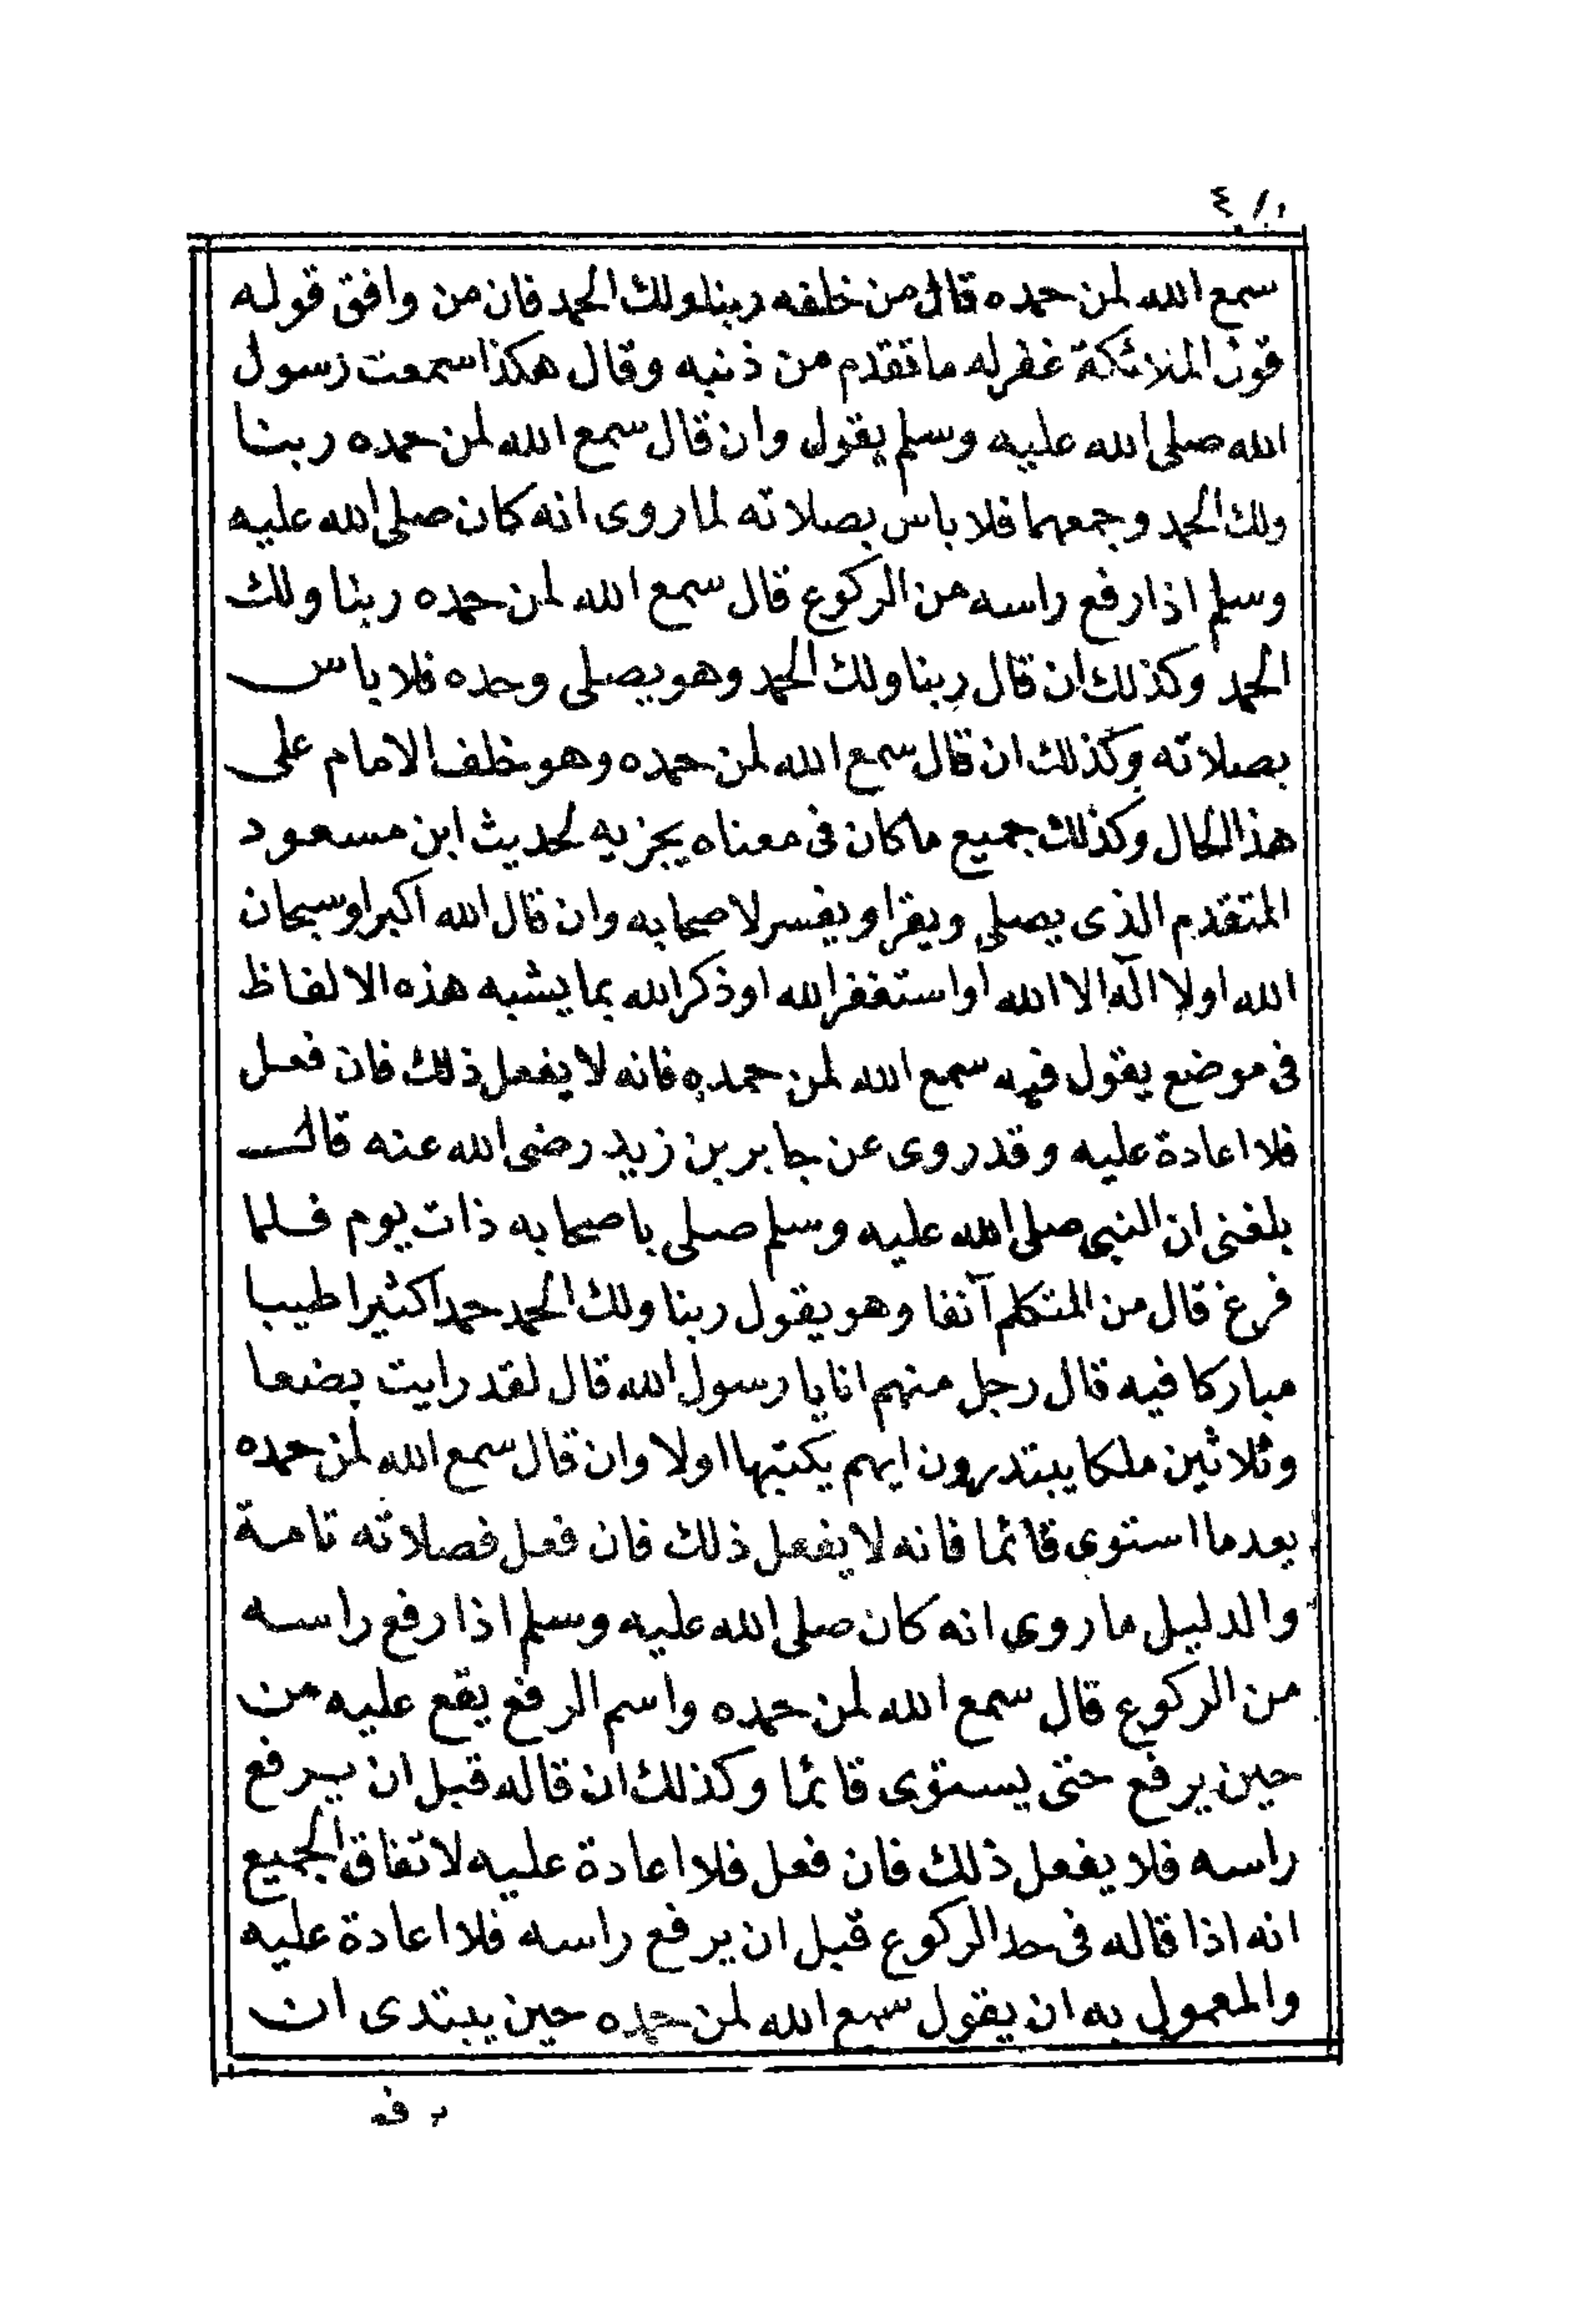 سمع الله لمن حمده قال من خلفه ربنا ولك الحمد فان من وافق قوله
قول الملائكة غفر له ما تقدم من ذنبه وقال هكذا سمعت رسول
الله صلى الله عليه وسلم يقول وان قال سمع الله لمن حمده ربنا
ولك الحمد وجمعهما فلا باس بصلاته لما روى انه كان صلى الله عليه
وسلم اذا رفع راسه من الركوع قال سمع الله لمن حمده ربنا ولك
الحمد وكذلك ان قال ربنا ولك الحمد وهو يصلى وحده فلا باس
بصلاته وكذلك ان قال سمع الله لمن حمده وهو خلف الامام على
هذا الحال وكذلك جميع ما كان فى معناه يجزيه لحديث ابن مسعود
المتقدم الذى يصلى ويقرا ويفسر لاصحابه وان قال الله اكبر او سبحان
الله او لا اله الا الله او استغفر الله او ذكر الله بما يشبه هذه الالفاظ
فى موضع يقول فيه سمع الله لمن حمده فانه لا يفعل ذلك فان فعل
فلا اعادة عليه وقد روى عن جابر بن زيد رضى الله عنه قال
بلغنى ان النبى صلى الله عليه وسلم صلى باصحابه ذات يوم فلما
فرغ قال من المتكلم آنفا وهو يقول ربنا ولك الحمد حمدا كثيرا طيبا
مباركا فيه قال رجل منهم انا يا رسول الله قال لقد رايت بضعا
وثلاثين ملكا يبتدرون ايهم يكتبها اولا وان قال سمع الله لمن حمده
بعد ما استوى قائما فانه لا يفعل ذلك فان فعل فصلاته تامة
والدليل ما روى انه كان صلى الله عليه وسلم اذا رفع راسه
من الركوع قال سمع الله لمن حمده واسم الرفع يقع عليه من
حين يرفع حتى يستوى قائما وكذلك ان قاله قبل ان يرفع
راسه فلا يفعل ذلك فان فعل فلا اعادة عليه لاتفاق الجميع
انه اذا قاله فى حد الركوع قبل ان يرفع راسه فلا اعادة عليه
والمعمول به ان يقول سمع الله لمن حمده حين يبتدى ان